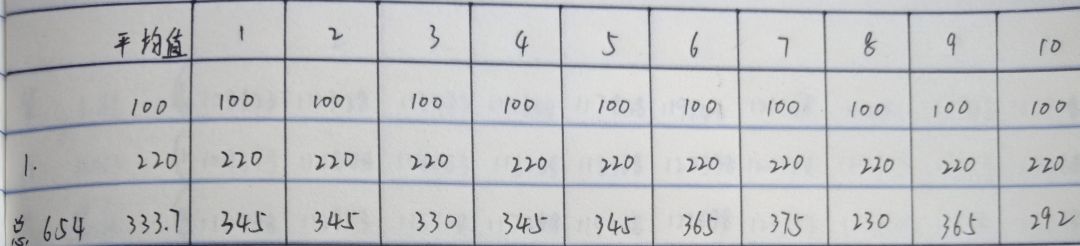 平均值 1 2 3 4 5 6 7 8 9 10
100 100 100 100 100 100 100 100 100 100 100
1. 220 220 220 220 220 220 220 220 220 220 220
654 333.7 345 345 330 345 345 365 375 230 365 292